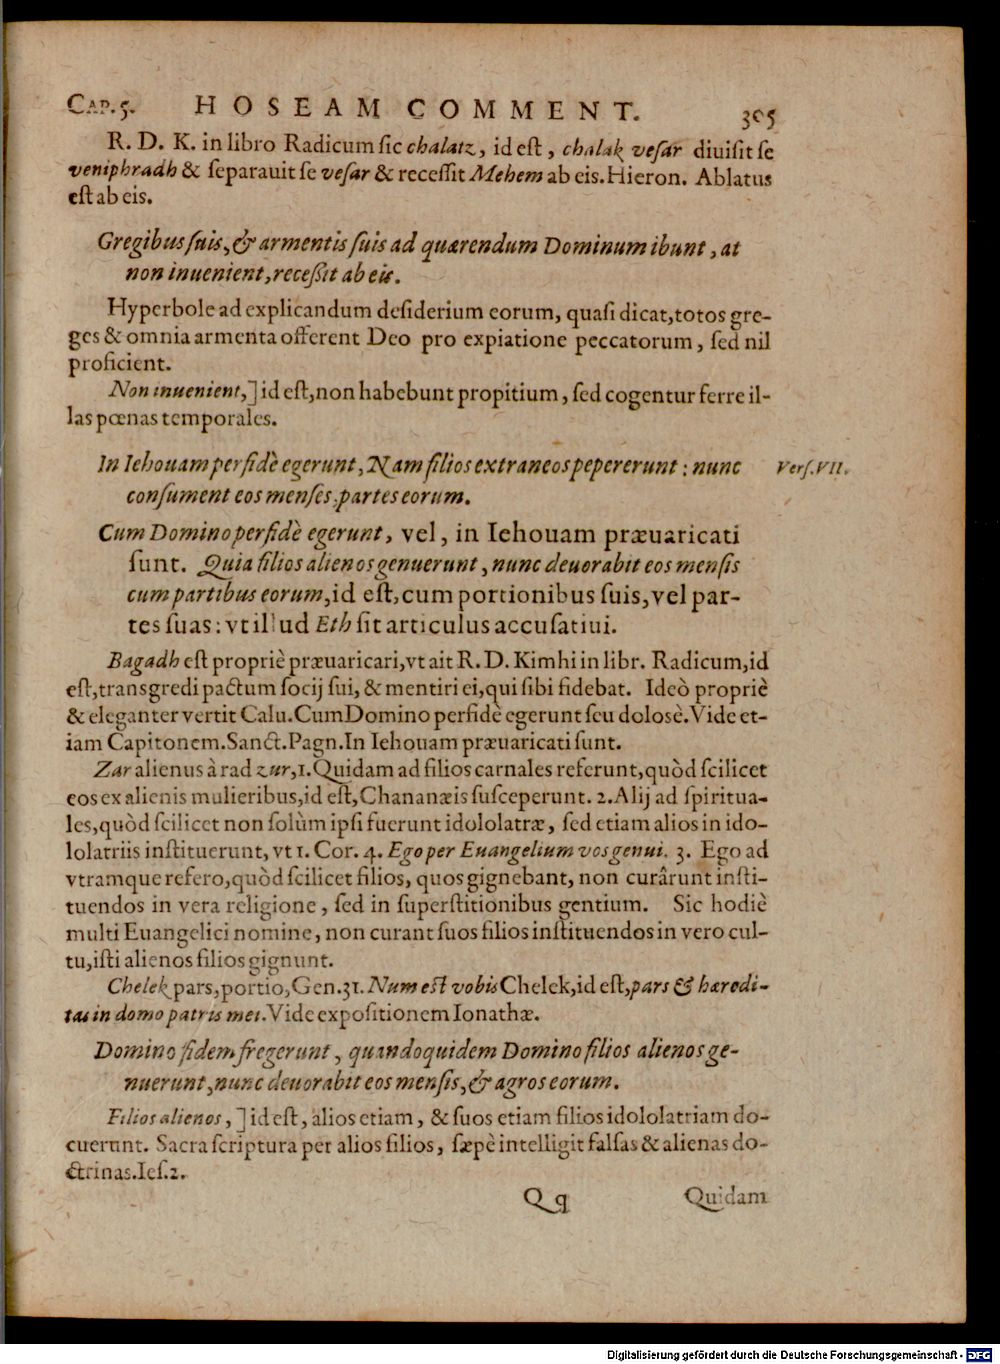 CAP. 5. HOSEAM COMMENT. 305
R. D. K. in libro Radicum ſic chalatz, id eſt, chalak veſar diuiſit ſe
veniphradh & ſeparauit ſe veſar & receſſit Mehem ab eis. Hieron. Ablatus
eſt ab eis.
Gregibus ſuis, & armentis ſuis ad quærendum Dominum ibunt, at
non inuenient, receßit ab eis.
Hyperbole ad explicandum deſiderium eorum, quaſi dicat, totos gre-
ges & omnia armenta offerent Deo pro expiatione peccatorum, ſed nil
proficient.
Non inuenient,] id eſt, non habebunt propitium, ſed cogentur ferre il-
las pœnas temporales.
In Iehouam perfidè egerunt, Nam filios extraneos pepererunt: nunc Verſ. VII.
conſument eos menſes, partes eorum.
Cum Domino perfidè egerunt, vel, in Iehouam præuaricati
ſunt. Quia filios alienos genuerunt, nunc deuorabit eos menſis
cum partibus eorum, id eſt, cum portionibus ſuis, vel par-
tes ſuas: vt illud Eth ſit articulus accuſatiui.
Bagadh eſt propriè præuaricari, vt ait R. D. Kimhi in libr. Radicum, id
eſt, transgredi pactum ſocij ſui, & mentiri ei, qui ſibi fidebat. Ideò propriè
& eleganter vertit Calu. Cum Domino perfidè egerunt ſeu dolosè. Vide et-
iam Capitonem. Sanct. Pagn. In Iehouam præuaricati ſunt.
Zar alienus à rad zur, 1. Quidam ad filios carnales referunt, quòd ſcilicet
eos ex alienis mulieribus, id eſt, Chananæis ſuſceperunt. 2. Alij ad ſpiritua-
les, quòd ſcilicet non ſolùm ipſi fuerunt idololatræ, ſed etiam alios in ido-
lolatriis inſtituerunt, vt 1. Cor. 4. Ego per Euangelium vos genui. 3. Ego ad
vtramque refero, quòd ſcilicet filios, quos gignebant, non curârunt inſti-
tuendos in vera religione, ſed in ſuperſtitionibus gentium. Sic hodiè
multi Euangelici nomine, non curant ſuos filios inſtituendos in vero cul-
tu, iſti alienos filios gignunt.
Chelek pars, portio, Gen. 31. Num eſt vobis Chelek, id eſt, pars & hæredi-
tas in domo patris mei. Vide expoſitionem Ionathæ.
Domino fidem fregerunt, quandoquidem Domino filios alienos ge-
nuerunt, nunc deuorabit eos menſis, & agros eorum.
Filios alienos,] id eſt, alios etiam, & ſuos etiam filios idololatriam do-
cuerunt. Sacra ſcriptura per alios filios, ſæpè intelligit falſas & alienas do-
ctrinas. Ieſ. 2.
Qq Quidam
Digitalisierung gefördert durch die Deutsche Forschungsgemeinschaft - DFG